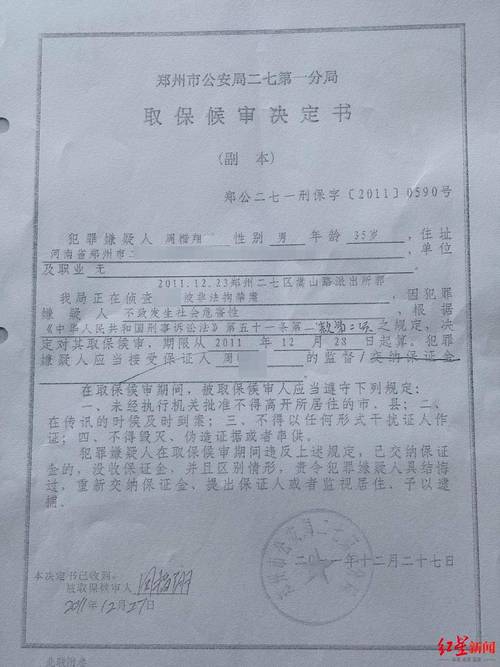 郑州市公安局二七第一分局
取保候审决定书
(副本)
郑公二七一刑保字〔2011〕0590号
犯罪嫌疑人 周楷翔 性别 男 年龄 35岁，住址
河南省郑州市二 单位
及职业 无
2011.12.23郑州二七区嵩山路派出所郭
我局正在侦查 被非法拘禁 ，因犯罪
嫌疑人 不致发生社会危害性 ，根据
《中华人民共和国刑事诉讼法》第五十一条第一款第二项之规定，决
定对其取保候审，期限从 2011 年 12 月 28 日起算。犯罪
嫌疑人应当接受保证人 周 的监督/交纳保证金
在取保候审期间，被取保候审人应当遵守下列规定：
一、未经执行机关批准不得离开所居住的市、县；二、
在传讯的时候及时到案；三、不得以任何形式干扰证人作
证；四、不得毁灭、伪造证据或者串供。
犯罪嫌疑人在取保候审期间违反上述规定，已交纳保证
金的，没收保证金，并且区别情形，责令犯罪嫌疑人具结悔
过，重新交纳保证金、提出保证人或者监视居住、予以逮
捕。
二〇一一年十二月二十七日
本决定书已收到。
被取保候审人 周楷翔
2011年12月27日
红星新闻